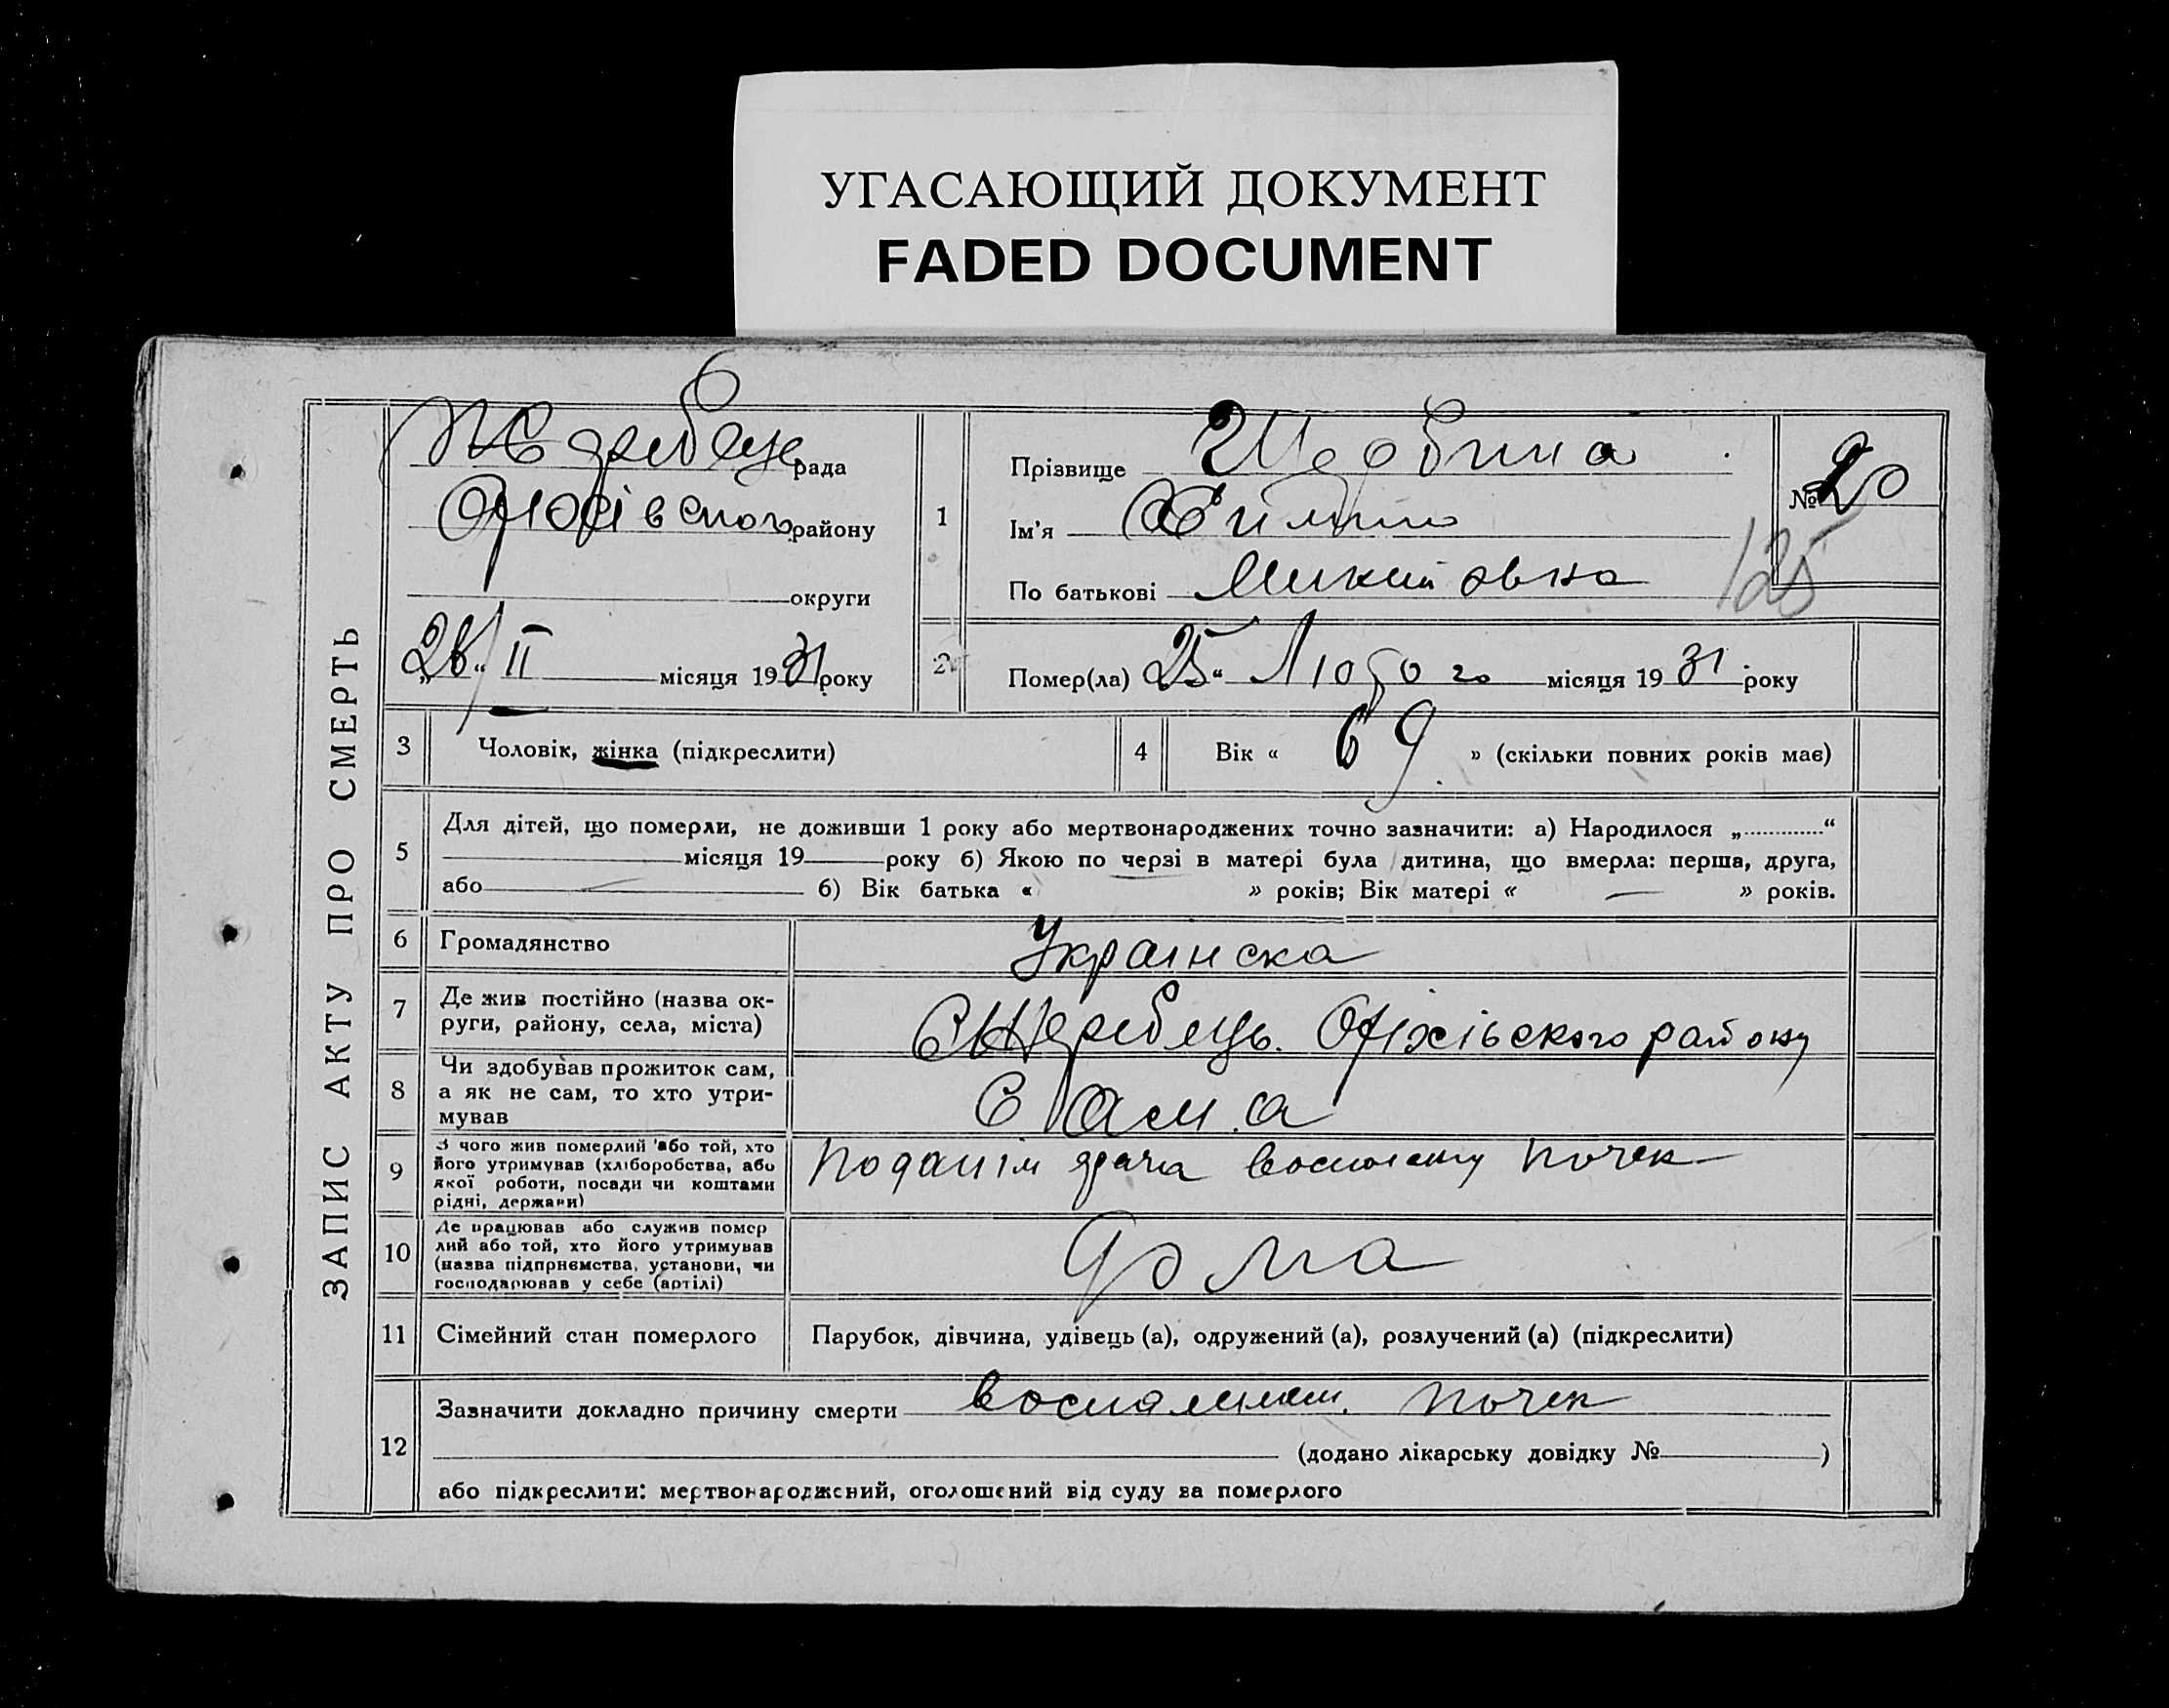 УГАСАЮЩИЙ ДОКУМЕНТ
FADED DOCUMENT
ЗАПИС АКТУ ПРО СМЕРТЬ
Жеребець рада
району
округи
26 / II місяця 1931 року
1
Прізвище Щербина
Ім'я
По батькові Микитовна
№ 20
125
2
Помер(ла) 25 “ Лютого місяця 1931 року
3
Чоловік, жінка (підкреслити)
4
Вік « 69 » (скільки повних років має)
5
Для дітей, що померли, не доживши 1 року або мертвонароджених точно зазначити: а) Народилося „ “
місяця 19 року б) Якою по черзі в матері була дитина, що вмерла: перша, друга,
або б) Вік батька « » років; Вік матері « — » років.
6
Громадянство
Українска
7
Де жив постійно (назва ок-
руги, району, села, міста)
С Жеребець. Оріхівского району
8
Чи здобував прожиток сам,
а як не сам, то хто утри-
мував
Сама
9
З чого жив померлий або той, хто
його утримував (хліборобства, або
якої роботи, посади чи коштами
рідні, держави)
почек
10
Де працював або служив помер
лий або той, хто його утримував
(назва підприємства, установи, чи
господарював у себе (артілі)
Дома
11
Сімейний стан померлого
Парубок, дівчина, удівець (а), одружений (а), розлучений (а) (підкреслити)
12
Зазначити докладно причину смерти почек
(додано лікарську довідку № )
або підкреслити: мертвонароджений, оголошений від суду за померлого